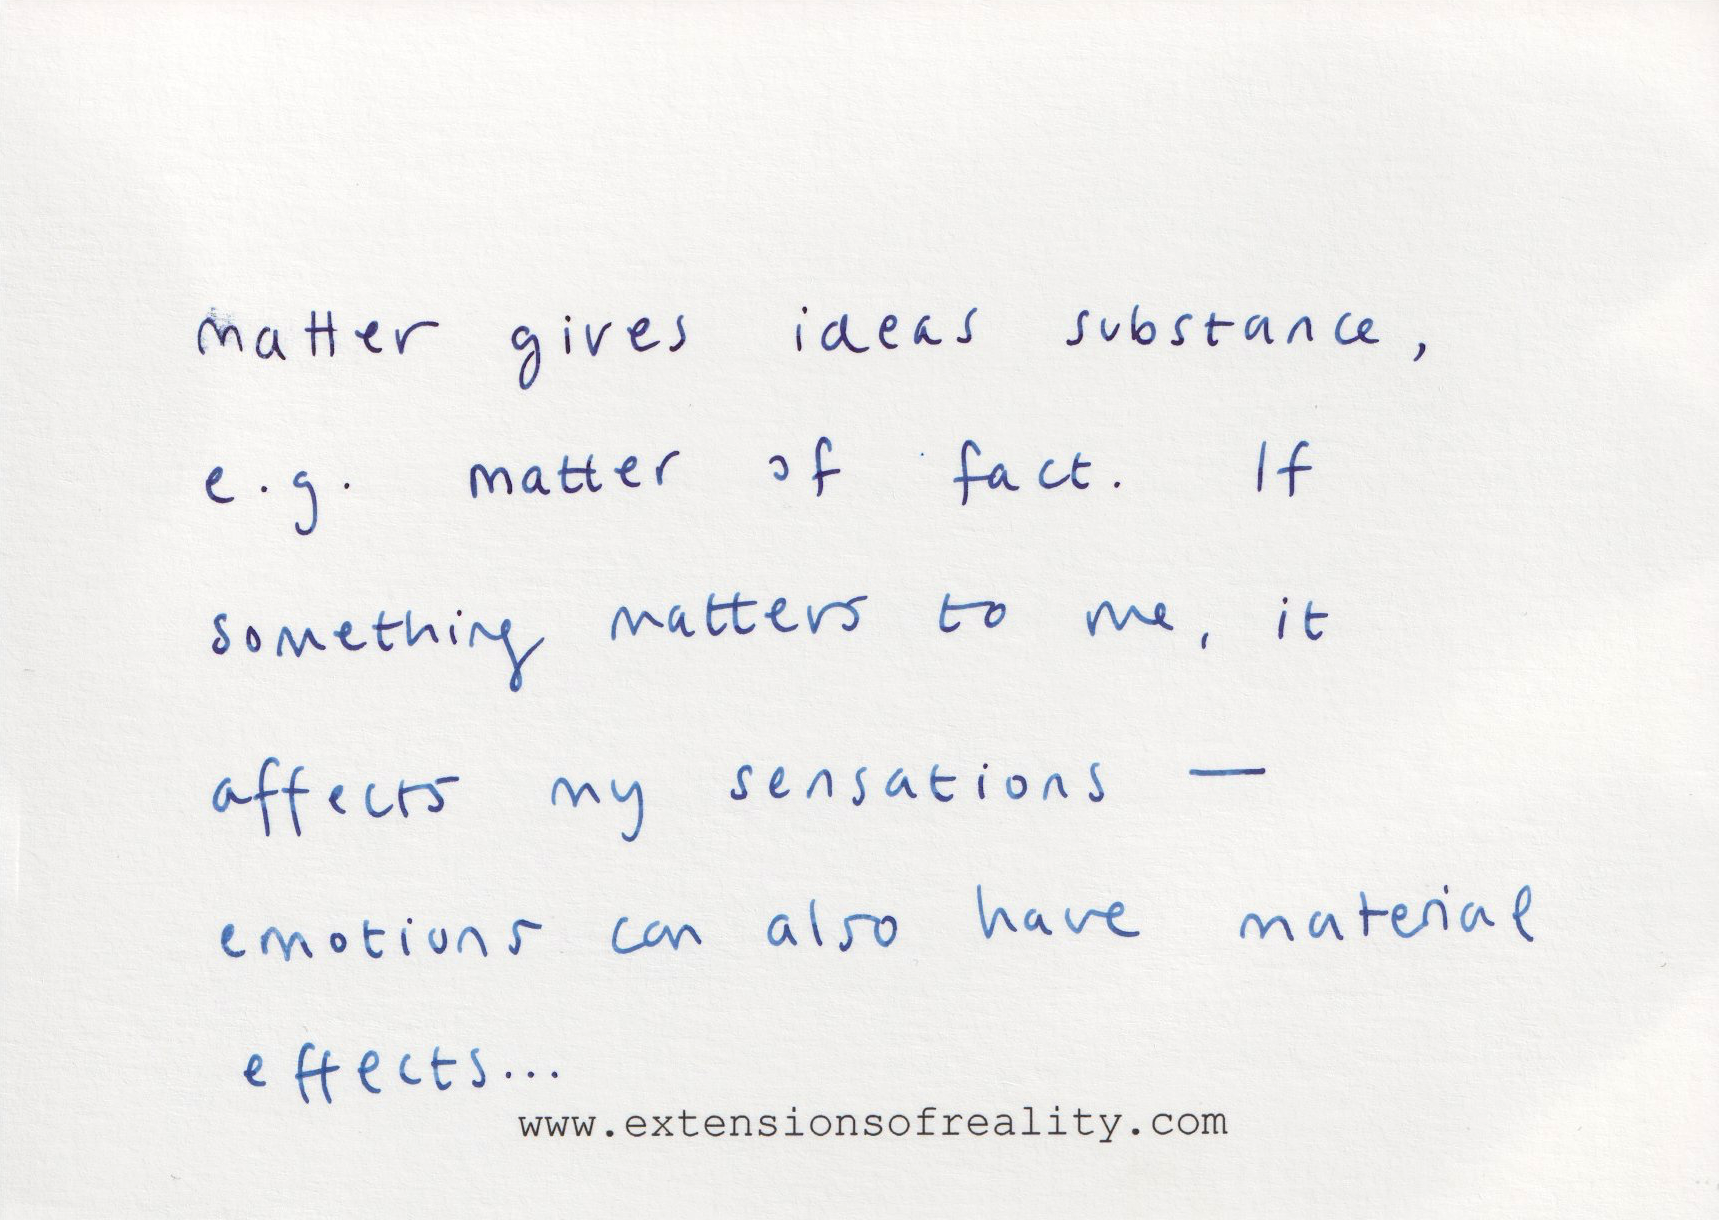 matter gives ideas substance,
e.g. matter of fact. If
something matters to me, it
affects my sensations —
emotions can also have material
effects...
www.extensionsofreality.com